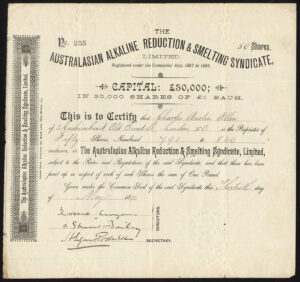 THE
No. 235
50 Shares.
AUSTRALASIAN ALKALINE REDUCTION & SMELTING SYNDICATE,
LIMITED.
Registered under the Companies' Acts, 1862 to 1890.
CAPITAL: £30,000;
IN 30,000 SHARES OF £1 EACH.
This is to Certify that Charles
of Old Broad St London E.C. is the Proprietor
of Fifty Shares Numbered to
inclusive, in The Australasian Alkaline Reduction & Smelting Syndicate, Limited,
subject to the Rules and Regulations of the said Syndicate, and that there has been
paid up in respect of each of such Shares the sum of One Pound.
Given under the Common Seal of the said Syndicate this day
of May
DIRECTORS.
SECRETARY.
The Australasian Alkaline Reduction & Smelting Syndicate, Limited.